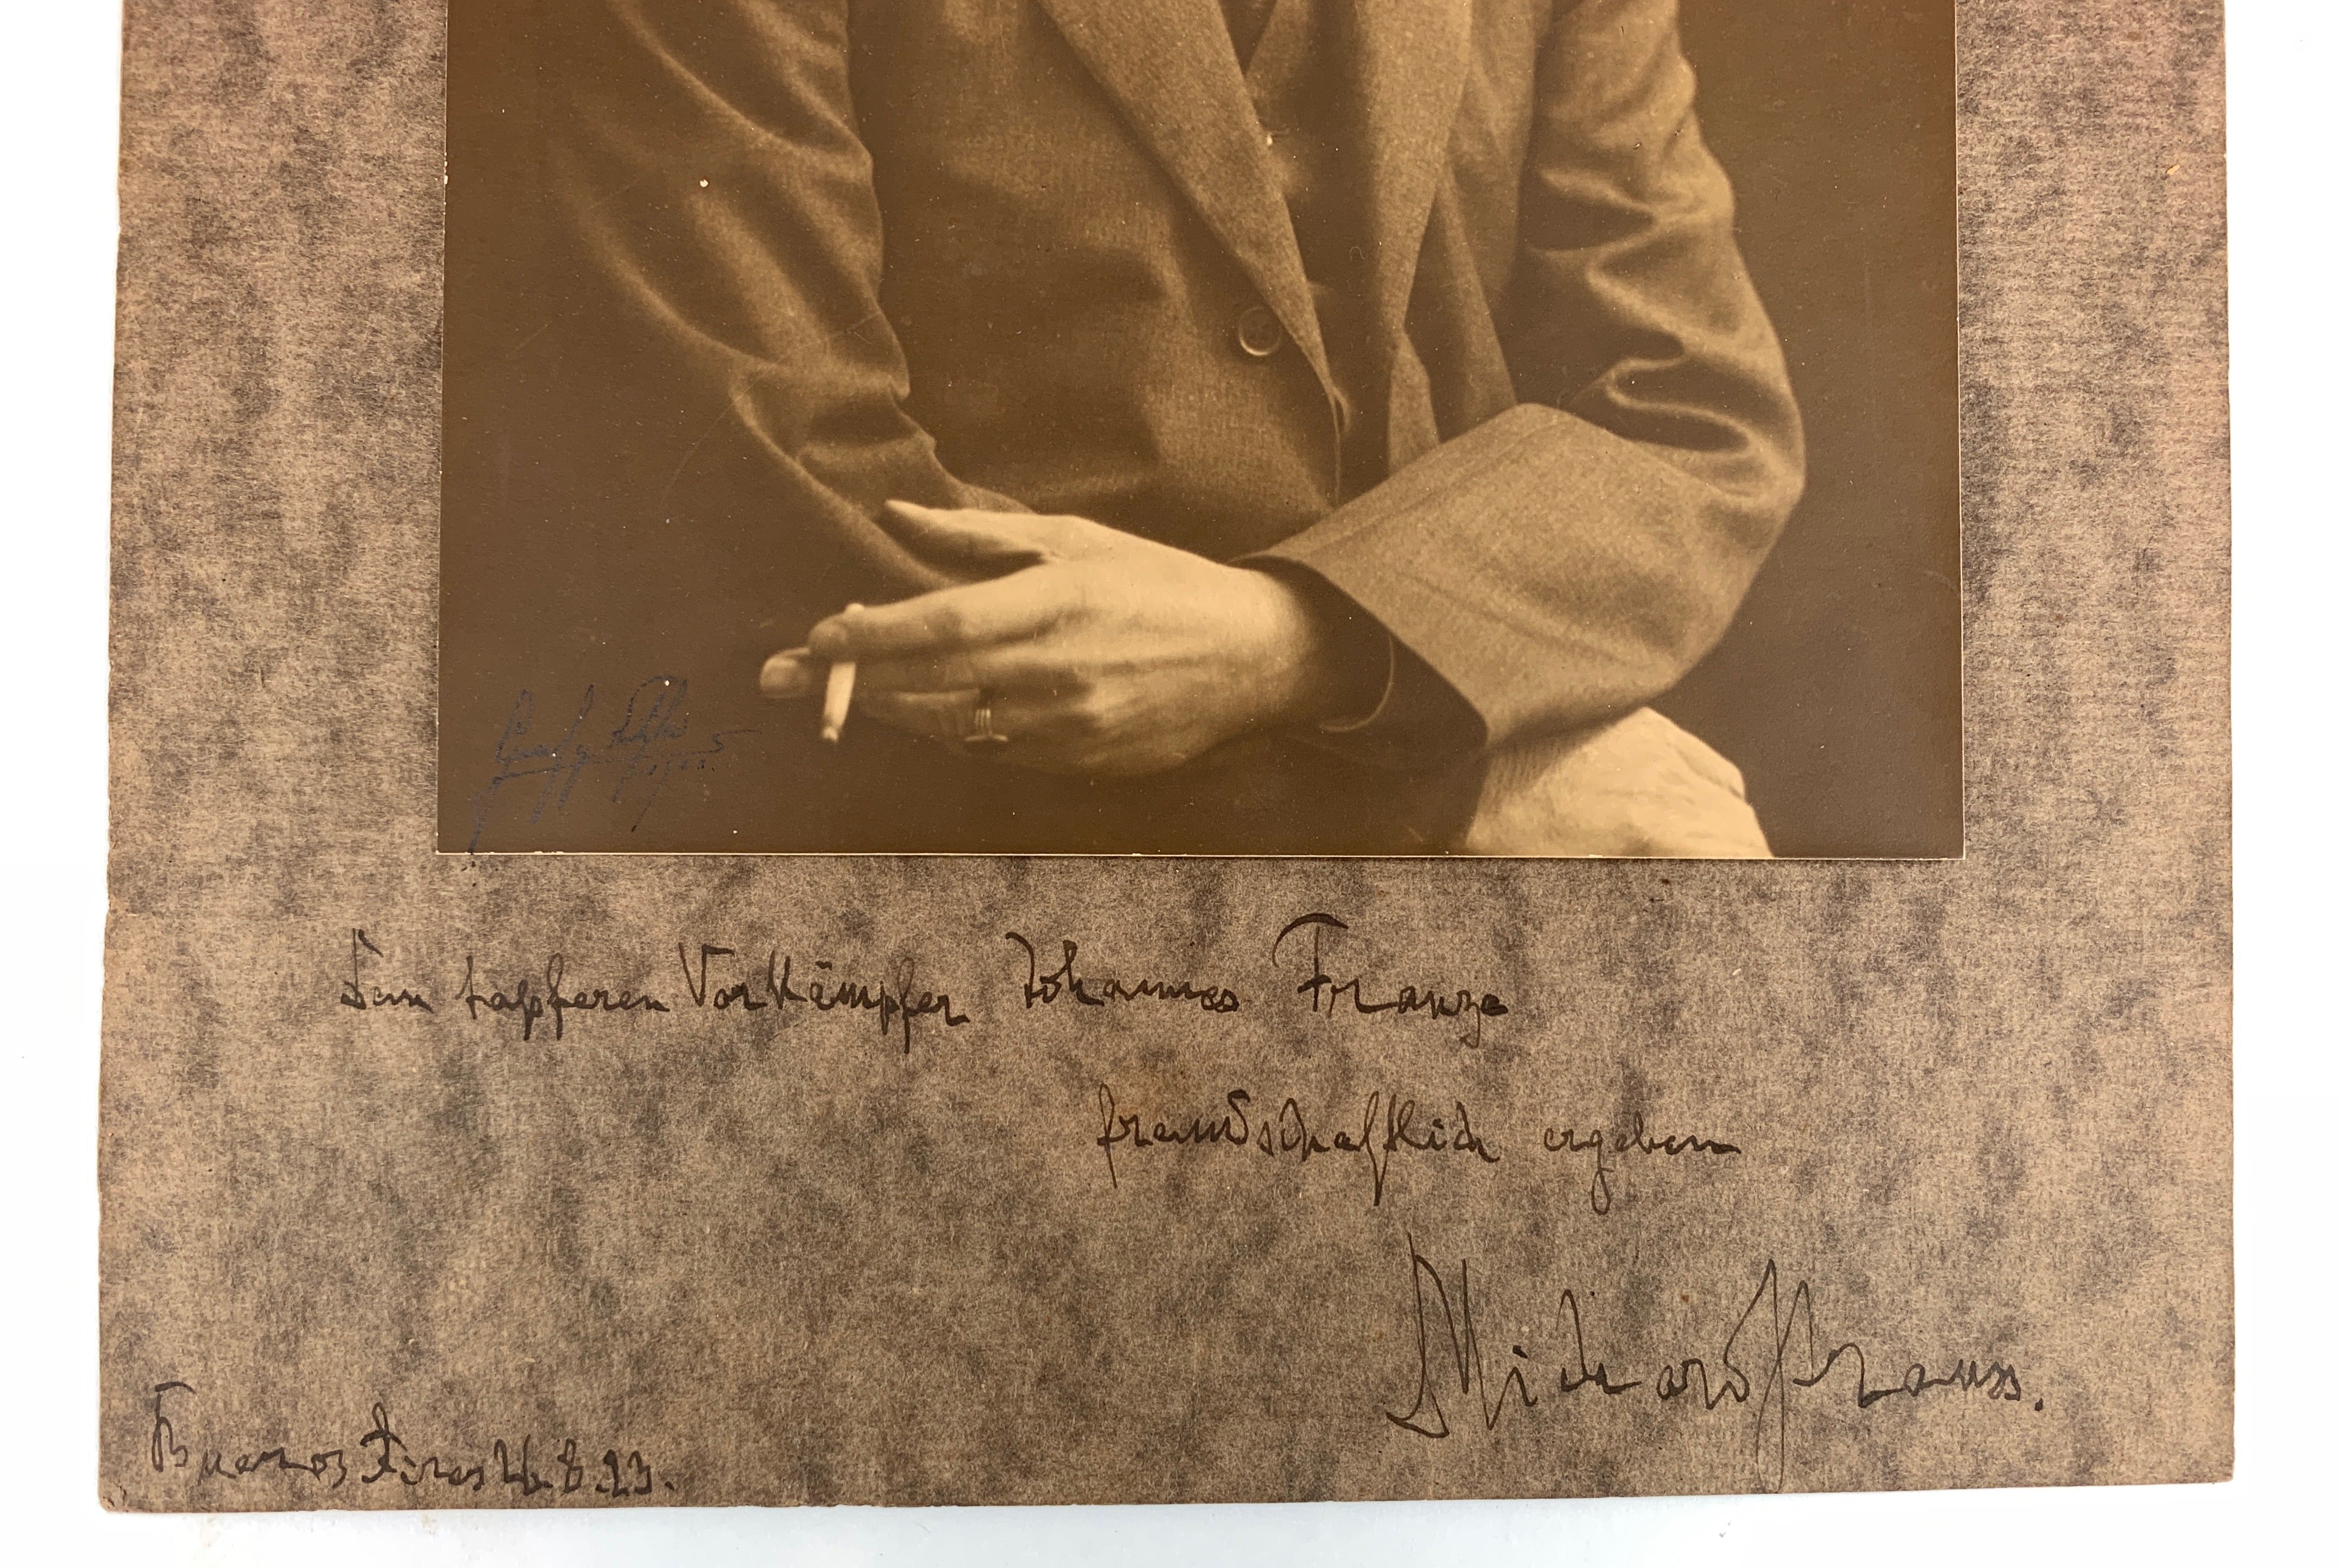 Dem tapferen Vorkämpfer Johannes Franze
freundschaftlich ergeben
Richard Strauss.
Buenos Aires 26.8.23.